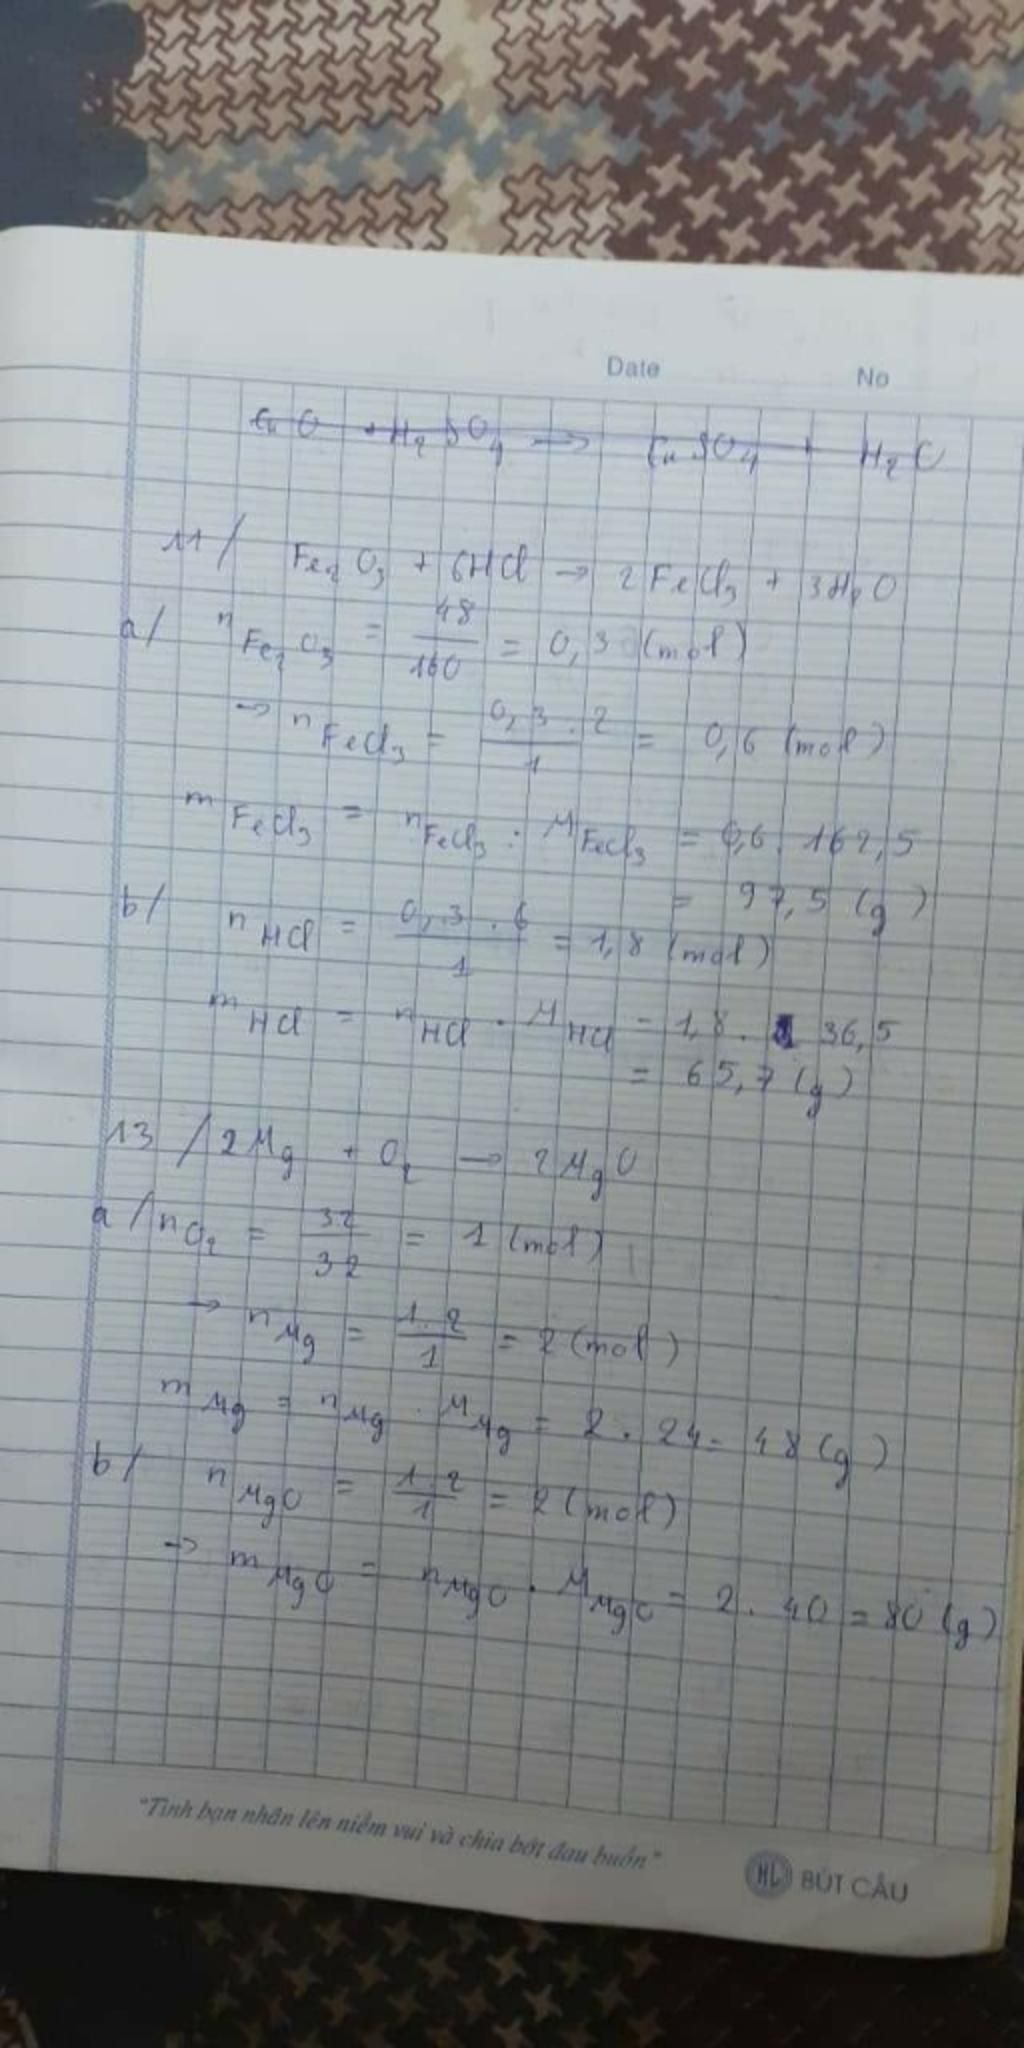 Date No
CuO + H2SO4 → CuSO4 + H2O
11/ Fe2O3 + 6HCl → 2FeCl3 + 3H2O
a/ nFe2O3 = 48/160 = 0,3 (mol)
→ nFeCl3 = 0,3 . 2/1 = 0,6 (mol)
mFeCl3 = nFeCl3 . MFeCl3 = 0,6 . 162,5
= 97,5 (g)
b/ nHCl = 0,3 . 6/1 = 1,8 (mol)
mHCl = nHCl . MHCl = 1,8 . 36,5
= 65,7 (g)
13/ 2Mg + O2 → 2MgO
a/ nO2 = 32/32 = 1 (mol)
→ nMg = 1.2/1 = 2 (mol)
mMg = nMg . MMg = 2 . 24 = 48 (g)
b/ nMgO = 1.2/1 = 2 (mol)
→ mMgO = nMgO . MMgO = 2 . 40 = 80 (g)
"Tình bạn nhân lên niềm vui và chia bớt đau buồn"
HL BÚT CÂU